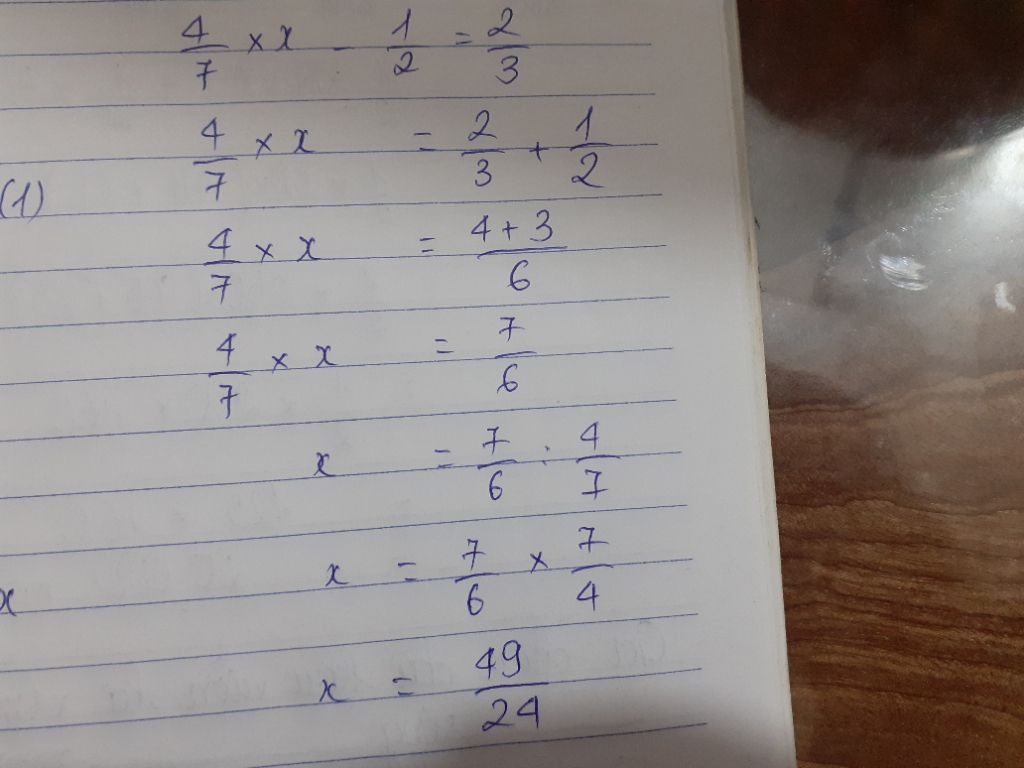 4/7 × x - 1/2 = 2/3
4/7 × x = 2/3 + 1/2
(1)
4/7 × x = 4+3/6
4/7 × x = 7/6
x = 7/6 : 4/7
x x = 7/6 × 7/4
x = 49/24